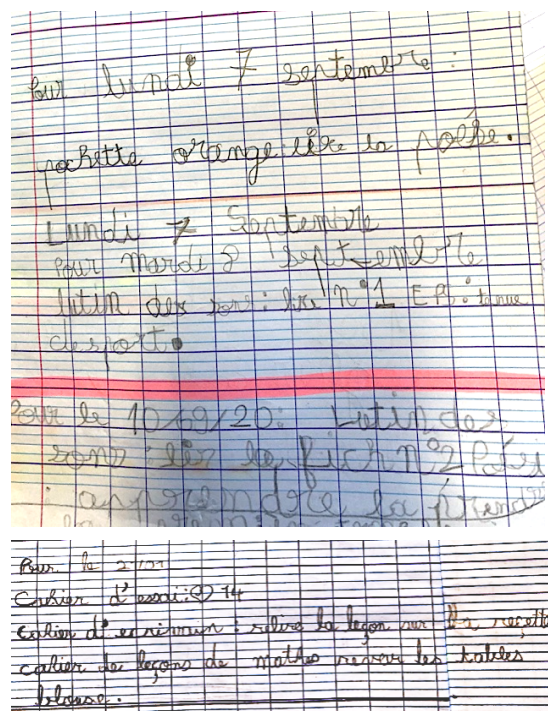 Pour lundi 7 septembre :
pochette orange lire la poésie.
Lundi 7 Septembre
Pour mardi 8 septembre
lutin des sons : lire n°1 EPS : tenue
de sport.
Pour le 10/09/20 : Lutin des
sons lir la fich n°2 Poési
: apprendre la prendr
Pour le
Cahier d'essai : ♡ 14
cahier d'ecrivain : relire la leçon sur la recette
cahier de leçons de maths revoir les tables
blouse.